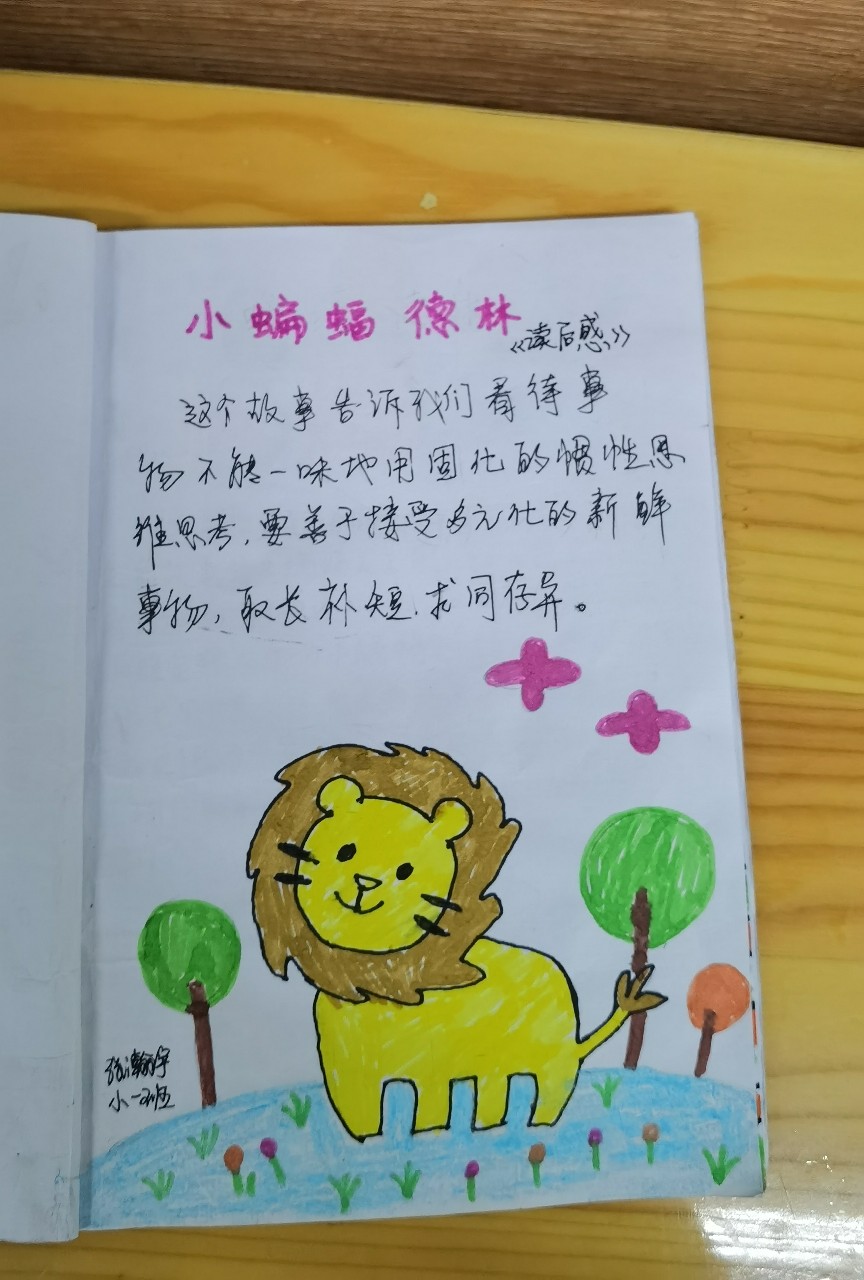 小蝙蝠德林
《读后感》
这个故事告诉我们看待事
物不能一味地用固化的惯性思
维思考，要善于接受多元化的新鲜
事物，取长补短.求同存异。
张瀚宇
小一班